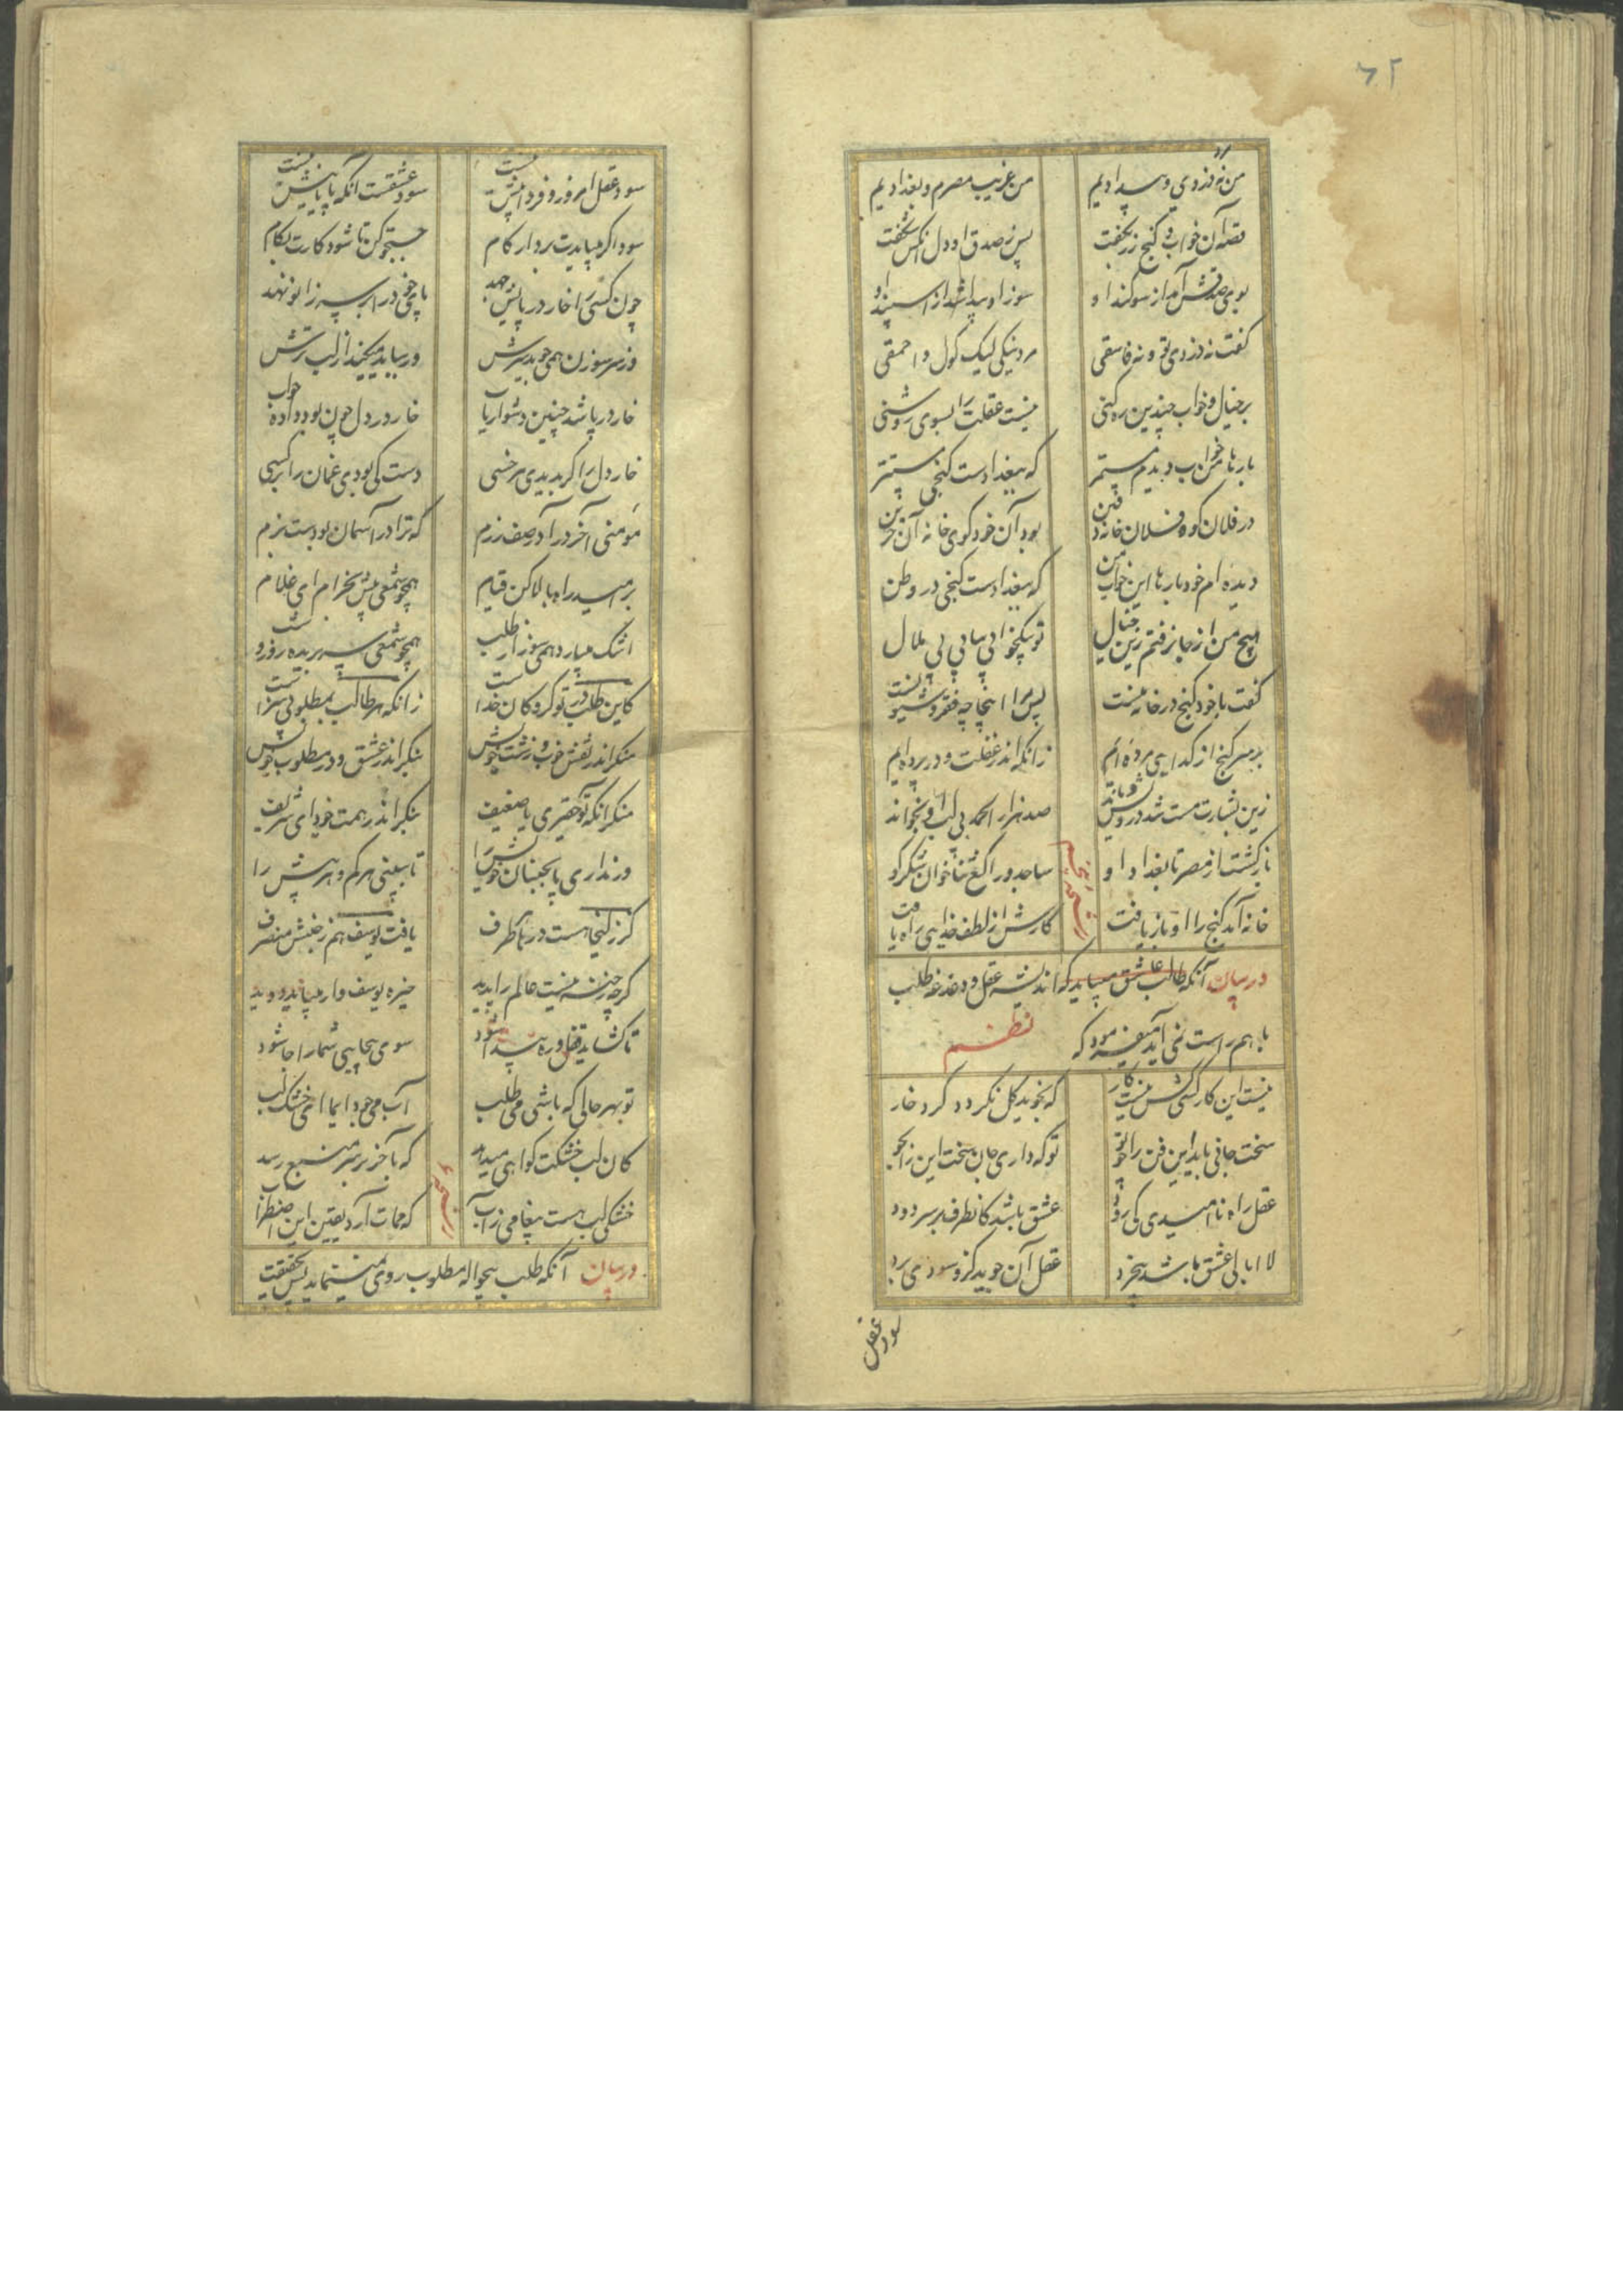 ۶۲
من نه دزدی و بیدادیم من غریب مصرم و بغدادیم
قصه آن خواب و گنج زر بگفت پس ز صدق او دل آنکس شگفت
بوی صدقش آمد از سوگند او سوز او پیدا شد از اسپند او
گفت نه دزدی تو و نه فاسقی مرد نیکی لیک گول و احمقی
بر خیال و خواب چندین ره کنی نیست عقلت را بسوی روشنی
بارها من خواب دیدم مستمر که ببغدادست گنجی مستتر
در فلان کوه فلان خانه دفین بود آن خود کوی خانه آن حزین
دیده ام خود بارها این خواب من که ببغدادست گنجی در وطن
هیچ من از جا نرفتم زین خیال تو بیک خوابی بیایی بی ملال
گفت با خود گنج در خانه منست پس مرا اینجا چه فقر و شیونست
بر سر گنج از گدایی مرده ام زانکه اندر غفلت و در پرده ام
زین بشارت مست شد دردش نماند صد هزار الحمد بی لب او بخواند
باز گشت از مصر تا بغداد او ساجد و راکع ثناخوان شکرگو
خانه آمد گنج را او باز یافت کارش از لطف خدایی راه یافت
در بیان آنکه طالب عاشق میباید که اندیشه عقل و دغدغه طلب
با هم راست نمی آید میفرمود که نظم
نیست این کار کسی کش نیست کار که بخوید گل نگردد گرد خار
سخت جانی باید این فن را چو تو تو که داری جان سخت این را بجو
عقل راه ناامیدی کی رود عشق باشد کانطرف بر سر دود
لا ابالی عشق باشد نی خرد عقل آن جوید کزو سودی برد
سود عقل
سود عقل امروز و فردا بیش نیست سود عشقست آنکه پایانیش نیست
سود اگر میبایدت بردار گام جستجو کن تا شود کارت بکام
چون کسی را خار در پایش جهد پای خود را بر سر زانو نهد
وز سر سوزن همی جوید سرش ور نیابد میکند از لب ترش
خار در پا شد چنین دشواریاب خار در دل چون بود واده جواب
خار دل را گر بدیدی هر خسی دست کی بودی غمان را بر کسی
مومنی آخر درآ در صف رزم که ترا در آسمان بودست بزم
بر امید راه بالا کن قیام همچو شمعی پیش محراب ای غلام
اشک میبار و همی سوز از طلب همچو شمعی سر بریده روز و شب
کاین طلب در تو گروگان خداست زانکه هر طالب بمطلوبی سزاست
منگر اندر نقش خوب و زشت خویش بنگر اندر عشق و در مطلوب خویش
منگر آنکه تو حقیری یا ضعیف بنگر اندر همت خود ای شریف
ور نداری پا بجنبان خویش را تا ببینی هر کم و هر بیش را
گر زلیخا بست در هر طرف یافت یوسف هم ز جنبش منصرف
گرچه رخنه نیست عالم را پدید خیره یوسف وار میباید دوید
تا گشاید قفل و ره پیدا شود سوی بیجایی شما را جا شود
تو بهر حالی که باشی می طلب آب می جو دایما ای خشک لب
کان لب خشکت گواهی میدهد که بآخر بر سر منبع رسد
خشکی لب هست پیغامی ز آب که بمات آرد یقین این اضطراب
در بیان آنکه طلب بیحواله مطلوب روی نمینماید پس حقیقت